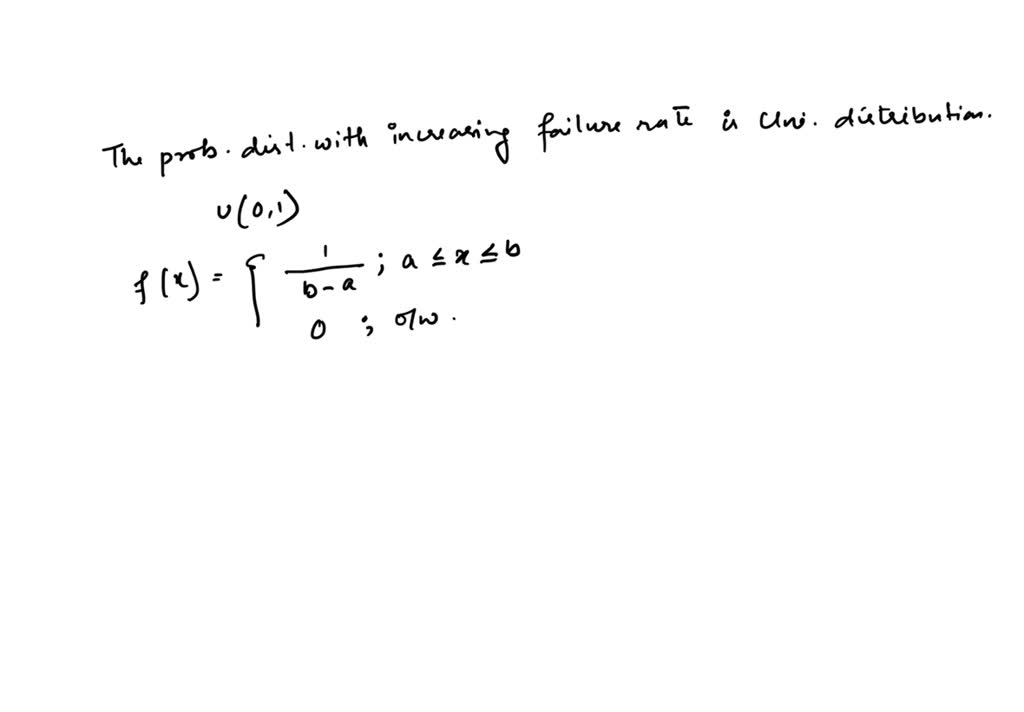 The prob. dist. with increasing failure rate is Uni. distribution.
U(0,1)
f(x) = { 1/(b-a) ; a ≤ x ≤ b
0 ; o/w.